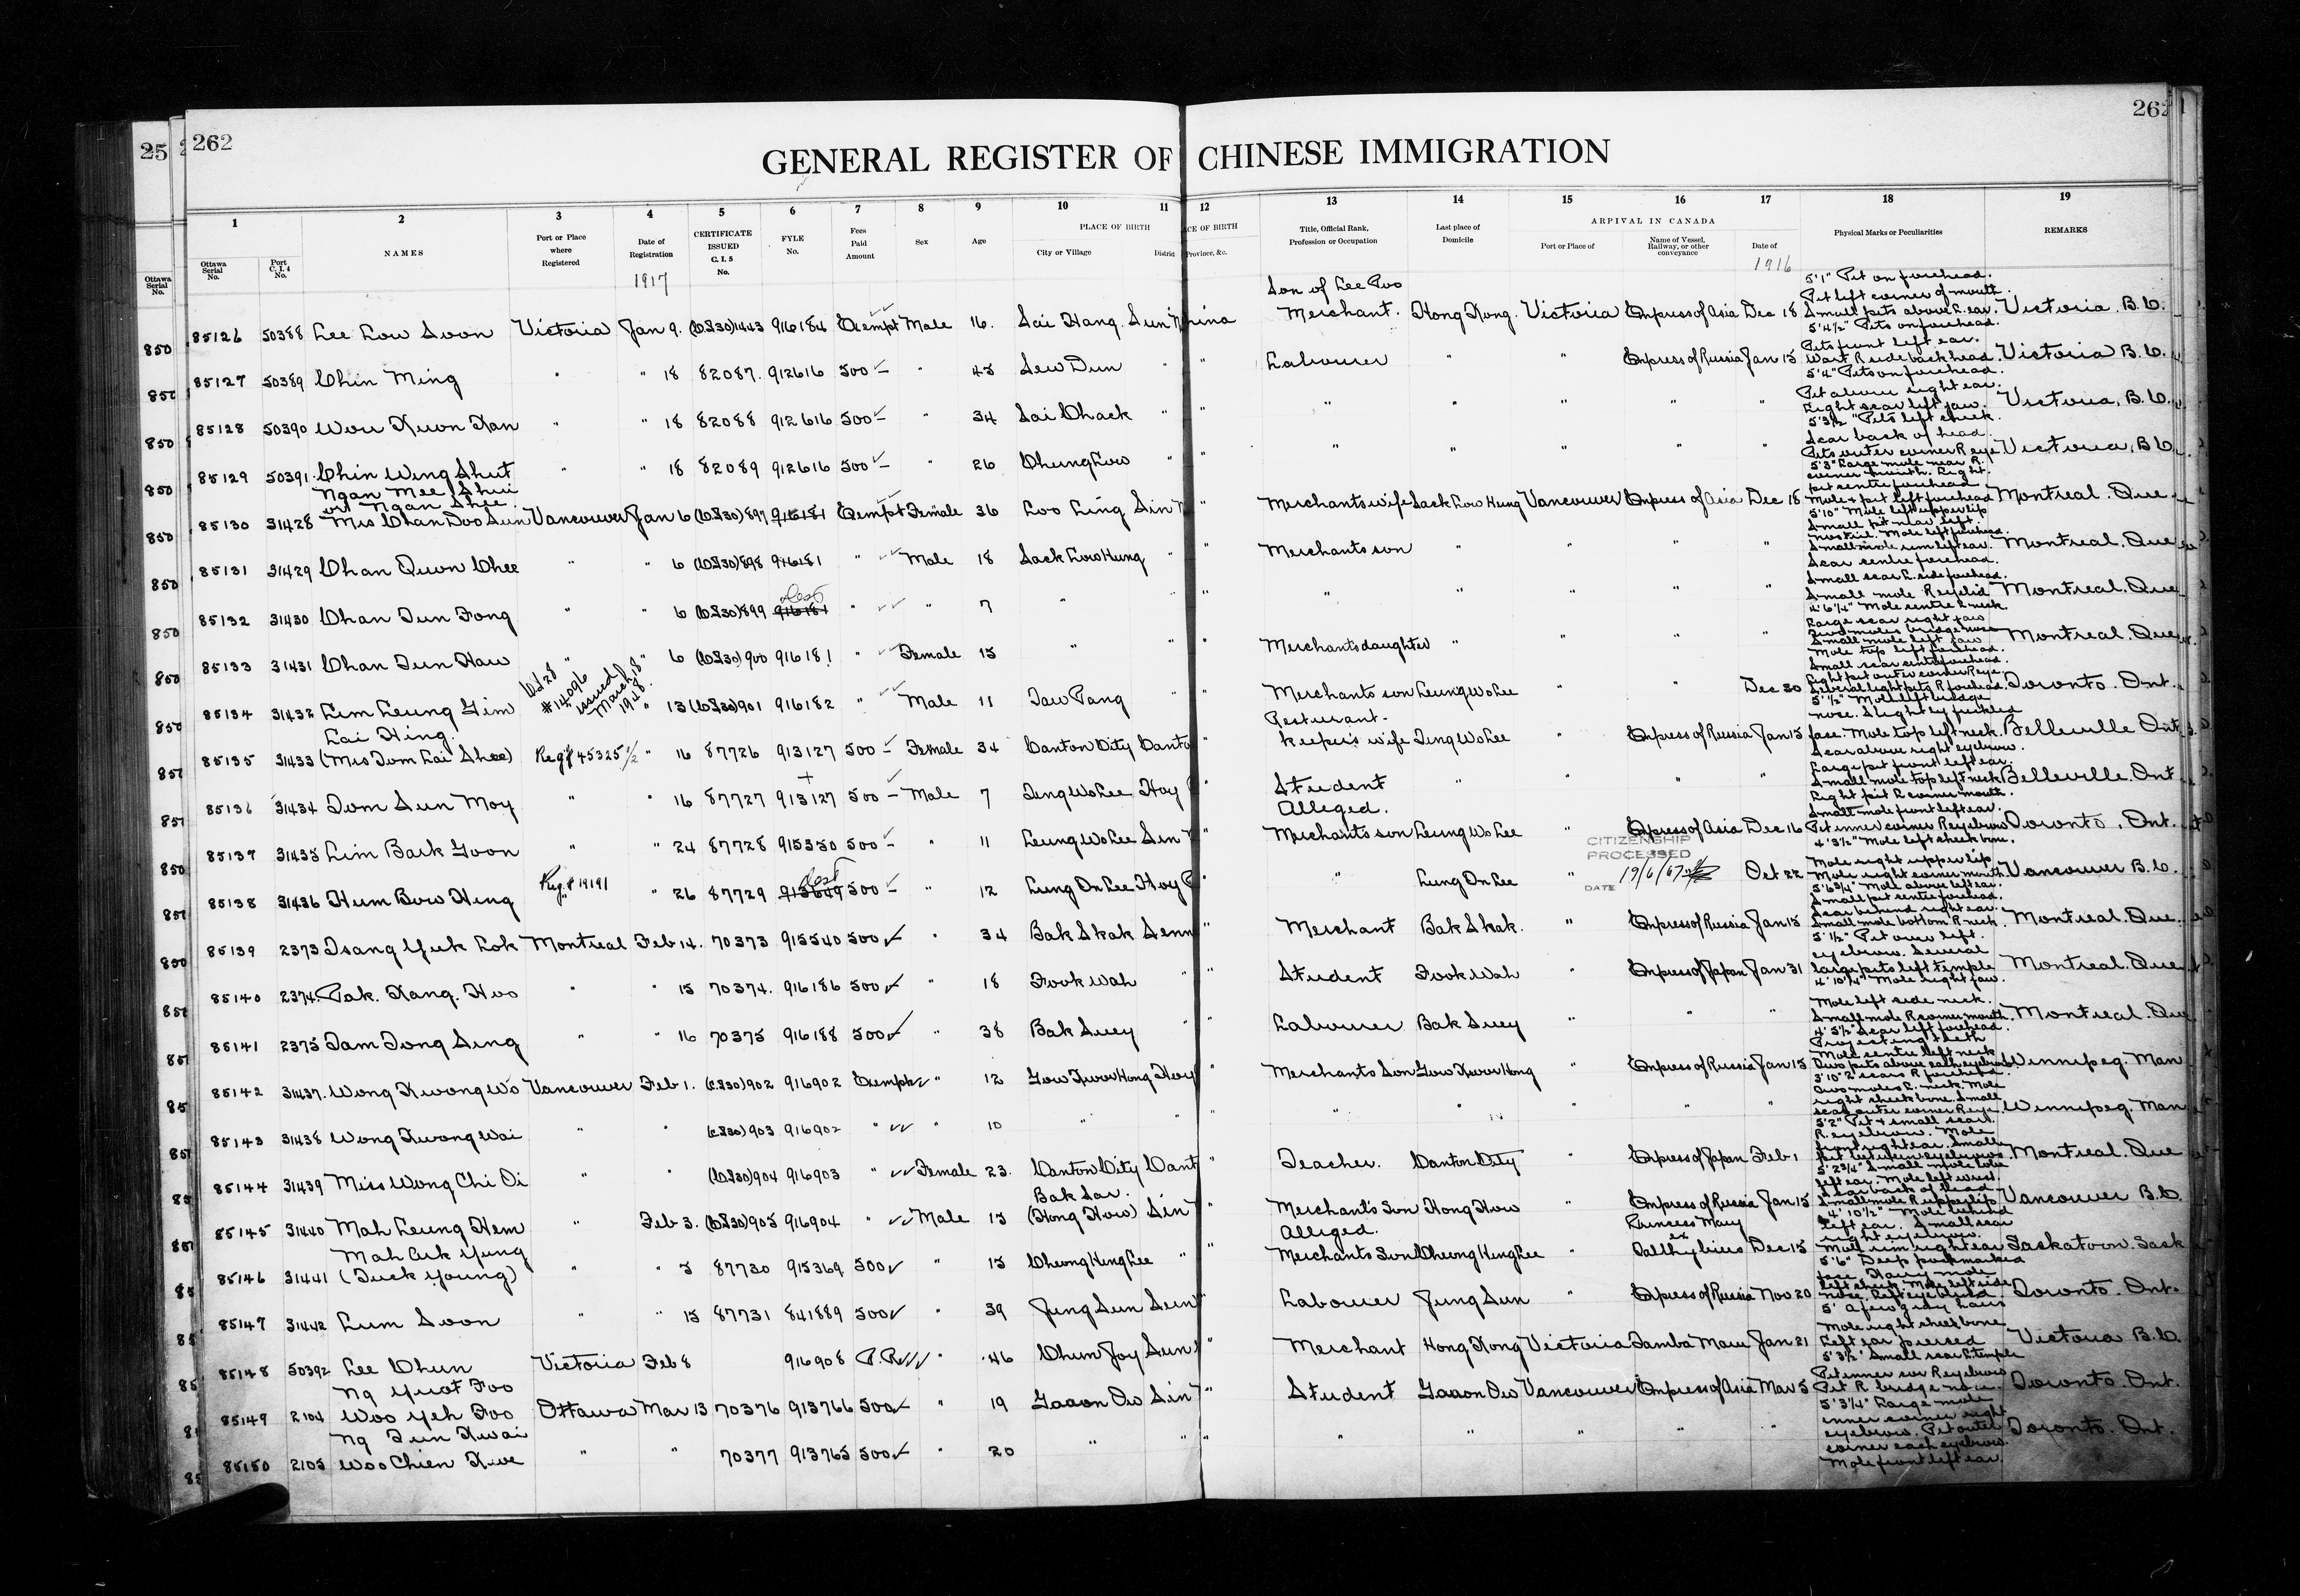 25
262
262
GENERAL REGISTER OF CHINESE IMMIGRATION
1 2 3 4 5 6 7 8 9 10 11 12 13 14 15 16 17 18 19
Ottawa Serial No. Port C. I. 4 No. NAMES Port or Place where Registered Date of Registration CERTIFICATE ISSUED C. I. 5 No. FYLE No. Fees Paid Amount Sex Age PLACE OF BIRTH City or Village District Province, &c. Title, Official Rank, Profession or Occupation Last place of Domicile ARRIVAL IN CANADA Port or Place of Name of Vessel, Railway, or other conveyance Date of Physical Marks or Peculiarities REMARKS
1917 1916
Son of Lee Poo
85126 50388 Lee Low Soon Victoria Jan 9. (C.I.30)1443 916184 Exempt Male 16. Sai Hang. Sun China Merchant. Hong Kong. Victoria Empress of Asia Dec 18 5'1" Pit on forehead. Pit left corner of mouth. Small pits above L. ear. Victoria. B.C.
85127 50389 Chin Ming " " 18 82087. 912616 500 " 45 Sew Dun " " Labourer " " Empress of Russia Jan 15 5'4½" Pits on forehead. Pits front left ear. Wart R side back head. Victoria B.C.
85128 50390 Wou Kwon Kan " " 18 82088 912616 500 " 34 Sai Chack " " " " " " " 5'4" Pits on forehead. Pit above right ear. Light scar left jaw. Victoria, B.C.
85129 50391. Chin Wing Shut " " 18 82089 912616 500 " 26 Chung Low " " " " " " " 5'3½" Pits left cheek. Scar back of head. Pits outer corner R eye Victoria, B.C.
Ngan Mee Shui
or Ngan Shee
85130 31428 Mrs Chan Doo Sun Vancouver Jan 6 (C.I.30)897 916181 Exempt Female 36 Loo Ling Sin " Merchants wife Sack Low Hung Vancouver Empress of Asia Dec 18 5'3" Large mole near R. corner mouth. Light pit centre forehead Mole & pit left forehead Montreal. Que
85131 31429 Chan Quon Chee " " 6 (C.I.30)898 916181 " Male 18 Sack Low Hung " " Merchants son " " " " 5'10" Mole left upper lip Small pit near left nostril. Mole left forehead. Small mole rim left ear. Montreal. Que
85132 31430 Chan Sun Fong " " 6 (C.I.30)899 916181 " " 7 " " " " " " " " Scar centre forehead. Small scar L. side forehead. Small mole R eyelid Montreal. Que
85133 31431 Chan Sun Haw " " 6 (C.I.30)900 916181 " Female 15 " " " Merchants daughter " " " " 4'6¼" Mole centre L neck Large scar right jaw Two moles bridge nose Small mole left jaw Montreal. Que
C.I.28 #14096 issued March 18 1918.
85134 31432 Lim Leung Gim " 13 (C.I.30)901 916182 " Male 11 Taw Pang " " Merchants son Leung Wo Lee " " Dec 30 Mole top left forehead. Small scar centre forehead. Light pit outer corner R eye. Several light pits R forehead. Toronto. Ont.
Lai Hing. Resturant-
85135 31433 (Mrs Tom Lai Shee) Reg# 45325½ " 16 87726 913127 500 Female 34 Canton City Canto " keeper's wife Teng Wo Lee " Empress of Russia Jan 15 5'½" Mole left bridge nose. Slightly freckled face. Mole top left neck. Belleville Ont
85136 31434 Tom Sun Moy " " 16 87727 913127 500 Male 7 Teng Wo Lee Hoy " Student " " " " Scar above right eyebrow. Large pit front left ear. Small mole top left neck Belleville. Ont
Alleged.
85137 31435 Lim Bark Goon " " 24 87728 915350 500 " 11 Leung Wo Lee Sin " Merchants son Leung Wo Lee " Empress of Asia Dec 16 Light pit R corner mouth. Small mole front left ear. Pit inner corner R eyebrow Toronto. Ont.
CITIZENSHIP PROCESSED
DATE 19/6/67
85138 31436 Hum Bow Hing Reg.# 19191 " 26 87729 913649 500 " 12 Lung On Lee Hoy " " Lung On Lee " Oct 22 4'3½" Mole left cheek bone. Mole right upper lip Mole right corner mouth Vancouver B.C.
85139 2373 Tsang Yuk Lok Montreal Feb 14. 70373 915540 500 " 34 Bak Shak Senn " Merchant Bak Shak. " Empress of Russia Jan 15 5'6¾" Mole above left ear. Small pit centre forehead. Scar behind right ear. Small mole bottom R neck. Montreal. Que.
85140 2374. Pak. Kang. Hoo " " 15 70374. 916186 500 " 18 Fook Wah " " Student Fook Wah " Empress of Japan Jan 31 5'1½" Pit over left eyebrow. Several large pits left temple Montreal. Que
85141 2375 Tam Tong Sing " " 16 70375 916188 500 " 38 Bak Suey " " Labourer Bak Suey " " " 4'10¼" Mole right jaw. Mole left side neck. Small mole R corner mouth. Montreal. Que
85142 31437. Wong Kwong Wo Vancouver Feb 1. (C.I.30)902 916902 Exempt " 12 Gow Kwor Hong Hoy " Merchants Son Gow Kwor Hong " Empress of Russia Jan 15 4'5½" Scar left forehead. Projecting teeth Mole centre left neck Two pits above each eyebrow. Winnipeg. Man
85143 31438 Wong Kwong Wai " " (C.I.30)903 916902 " " 10 " " " " " " " " 3'10" 2 scars R forehead. Two moles L. neck. Mole right cheek bone. Small scar outer corner R eye. Winnipeg. Man
85144 31439 Miss Wong Chi Oi " " (C.I.30)904 916903 " Female 23. Canton City Cant " Teacher. Canton City " Empress of Japan Feb 1 5'2" Pit & small scar R. eyebrow. Mole front right ear. Small pit between eyebrows Montreal. Que
Bak Sar.
85145 31440 Mah Leung Hem " Feb 3. (C.I.30)905 916904 " Male 15 (Hong How) Sin " Merchant's Son Hong How " Empress of Russia Jan 15 5'2¾" Small mole lobe left ear. Mole left wrist. Scar back of head Small mole R upper lip Vancouver B.C.
Mah Ark Yung Alleged. Princess Mary ex
85146 31441 (Tuck Young) " " 5 87730 915369 500 " 15 Cheong Hing Lee " " Merchants Son Cheong Hing Lee " Talthybius Dec 15 4'10½" Mole behind left ear. Small scar right eyebrow. Mole rim right ear Saskatoon. Sask
85147 31442 Lum Soon " " 15 87731 841889 500 " 39 Jung Sun Sun " Labourer Jung Sun " Empress of Russia Nov 20 5'6" Deep pockmarked face. Hairy mole left cheek. Mole left side nose. Left eye blind Toronto. Ont.
85148 50392 Lee Chun Victoria Feb 8 916908 " 46 Chun Joy Sun " Merchant Hong Kong Victoria Tamba Maru Jan 21 5' A few gray hairs Mole right cheek bone Left ear pierced Victoria B.C.
Ng Yuot Foo
85149 2104 Woo Yeh Foo Ottawa Mar 13 70376 913766 500 " 19 Gaaon Ow Sin " Student Gaaon Ow Vancouver Empress of Asia Mar 5 5'3½" Small scar L temple Pit inner cor R eyebrow Pit R bridge nose. Toronto. Ont.
Ng Tun Kwai
85150 2105 Woo Chien Kwe " " 70377 913765 500 " 20 " " " " " " " " 5'3¼" Large mole inner corner right eyebrow. Pit outer corner each eyebrow. Mole front left ear. Toronto. Ont.